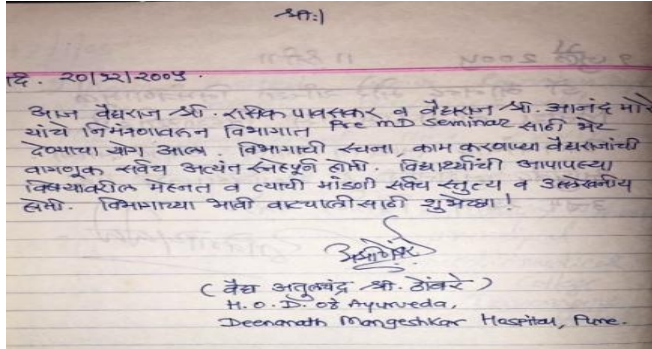 श्री:।
दि. २०/१२/२००५.
आज वैद्यराज श्री. रसिक पावसकर व वैद्यराज श्री. आनंद मोरे
यांचे निमंत्रणावरून विभागात Pre MD Seminar साठी भेट
देण्याचा योग आला. विभागाची रचना, काम करणाऱ्या वैद्यराजांची
वागणूक सर्वच अत्यंत स्नेहपूर्ण होती. विद्यार्थ्यांची आपापल्या
विषयावरील मेहनत व त्याची मांडणी सर्वच स्तुत्य व उल्लेखनीय
होती. विभागाच्या भावी वाटचालीसाठी शुभेच्छा!
(वैद्य अतुलचंद्र श्री. ठोंबरे)
H.O.D. of Ayurveda,
Deenanath Mangeshkar Hospital, Pune.